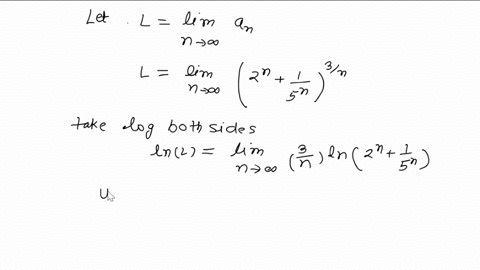 Let L = lim n→∞ aₙ
L = lim n→∞ (2ⁿ + 1/5ⁿ)^(3/n)
take log both sides
ln(L) = lim n→∞ (3/n) ln(2ⁿ + 1/5ⁿ)
U